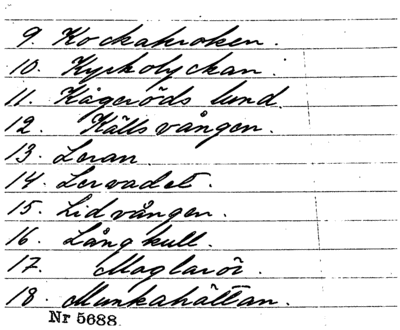 9. Kockakroken.
10. Kyrkolyckan.
11. Kågeröds lund.
12. Källsvången.
13. Leran.
14. Lervadet.
15. Lidvången.
16. Långkull.
17. Maglarör.
18. Munkahättan.
Nr 5688.